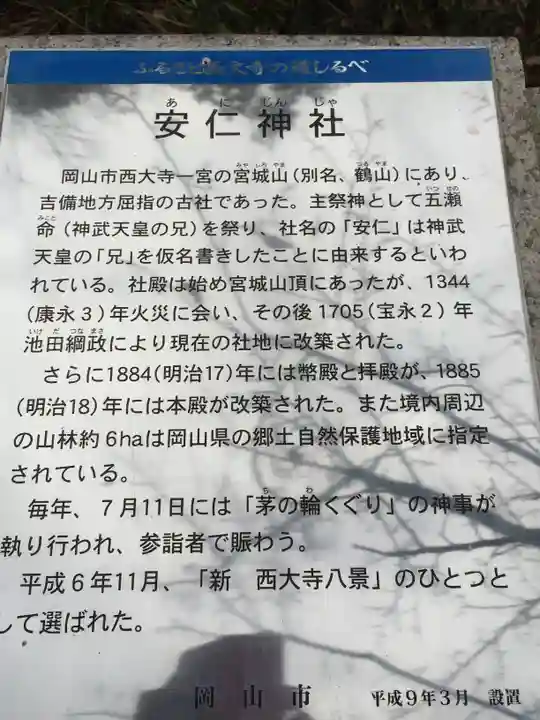 ふるさと西大寺の道しるべ
あ に じん じゃ
安仁神社
みや しろ やま つる やま
岡山市西大寺一宮の宮城山(別名、鶴山)にあり、
いつ せの
吉備地方屈指の古社であった。主祭神として五瀬
みこと
命(神武天皇の兄)を祭り、社名の「安仁」は神武
天皇の「兄」を仮名書きしたことに由来するといわ
れている。社殿は始め宮城山頂にあったが、1344
(康永3)年火災に会い、その後1705(宝永2)年
いけ だ つな まさ
池田綱政により現在の社地に改築された。
さらに1884(明治17)年には幣殿と拝殿が、1885
(明治18)年には本殿が改築された。また境内周辺
の山林約6haは岡山県の郷土自然保護地域に指定
されている。
ち わ
毎年、7月11日には「茅の輪くぐり」の神事が
執り行われ、参詣者で賑わう。
平成6年11月、「新 西大寺八景」のひとつと
して選ばれた。
岡山市 平成9年3月 設置